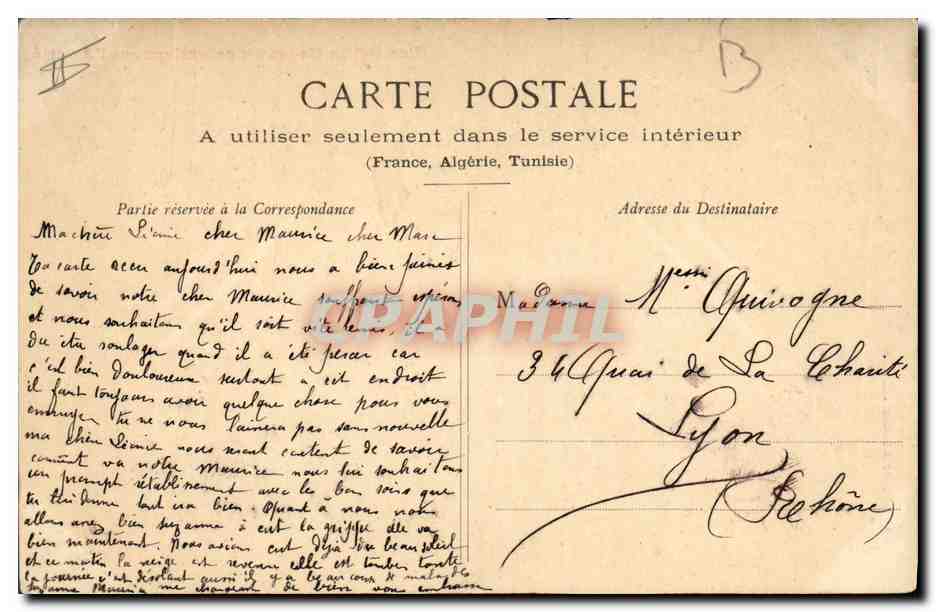 B
CARTE POSTALE
A utiliser seulement dans le service intérieur
(France, Algérie, Tunisie)
Partie réservée à la Correspondance
Adresse du Destinataire
Ma chère Léonie cher Maurice cher Marc
Ta carte recu aujourd'hui nous a bien peinés
de savoir notre cher Maurice souffrant espérons
et nous souhaitons qu'il soit vite il a
du etre soulager quand il a été percer car
c'est bien douloureux surtout a cet endroit
il faut toujours avoir quelque chose pour vous
ennuyer tu ne nous laissera pas sans nouvelle
ma chère Léonie nous serons content de savoir
comment va notre Maurice nous lui souhaitons
un prompt rétablissement avec les bon soins que
tu lui donne tout ira bien. Quant à nous nous
allons assez bien Suzanne à eut la grippe elle va
bien maintenant. Nous avions eut déjà du beau soleil
et ce matin la neige est revenu elle est tombée toute
la journée c'est désolant aussi il y a beaucoup de malades
Suzanne Maurice me chargent de bien vous embrasser
Madame Messrs Quivogne
34 Quai de La Charité
Lyon
(Rhône)
CPAPHIL